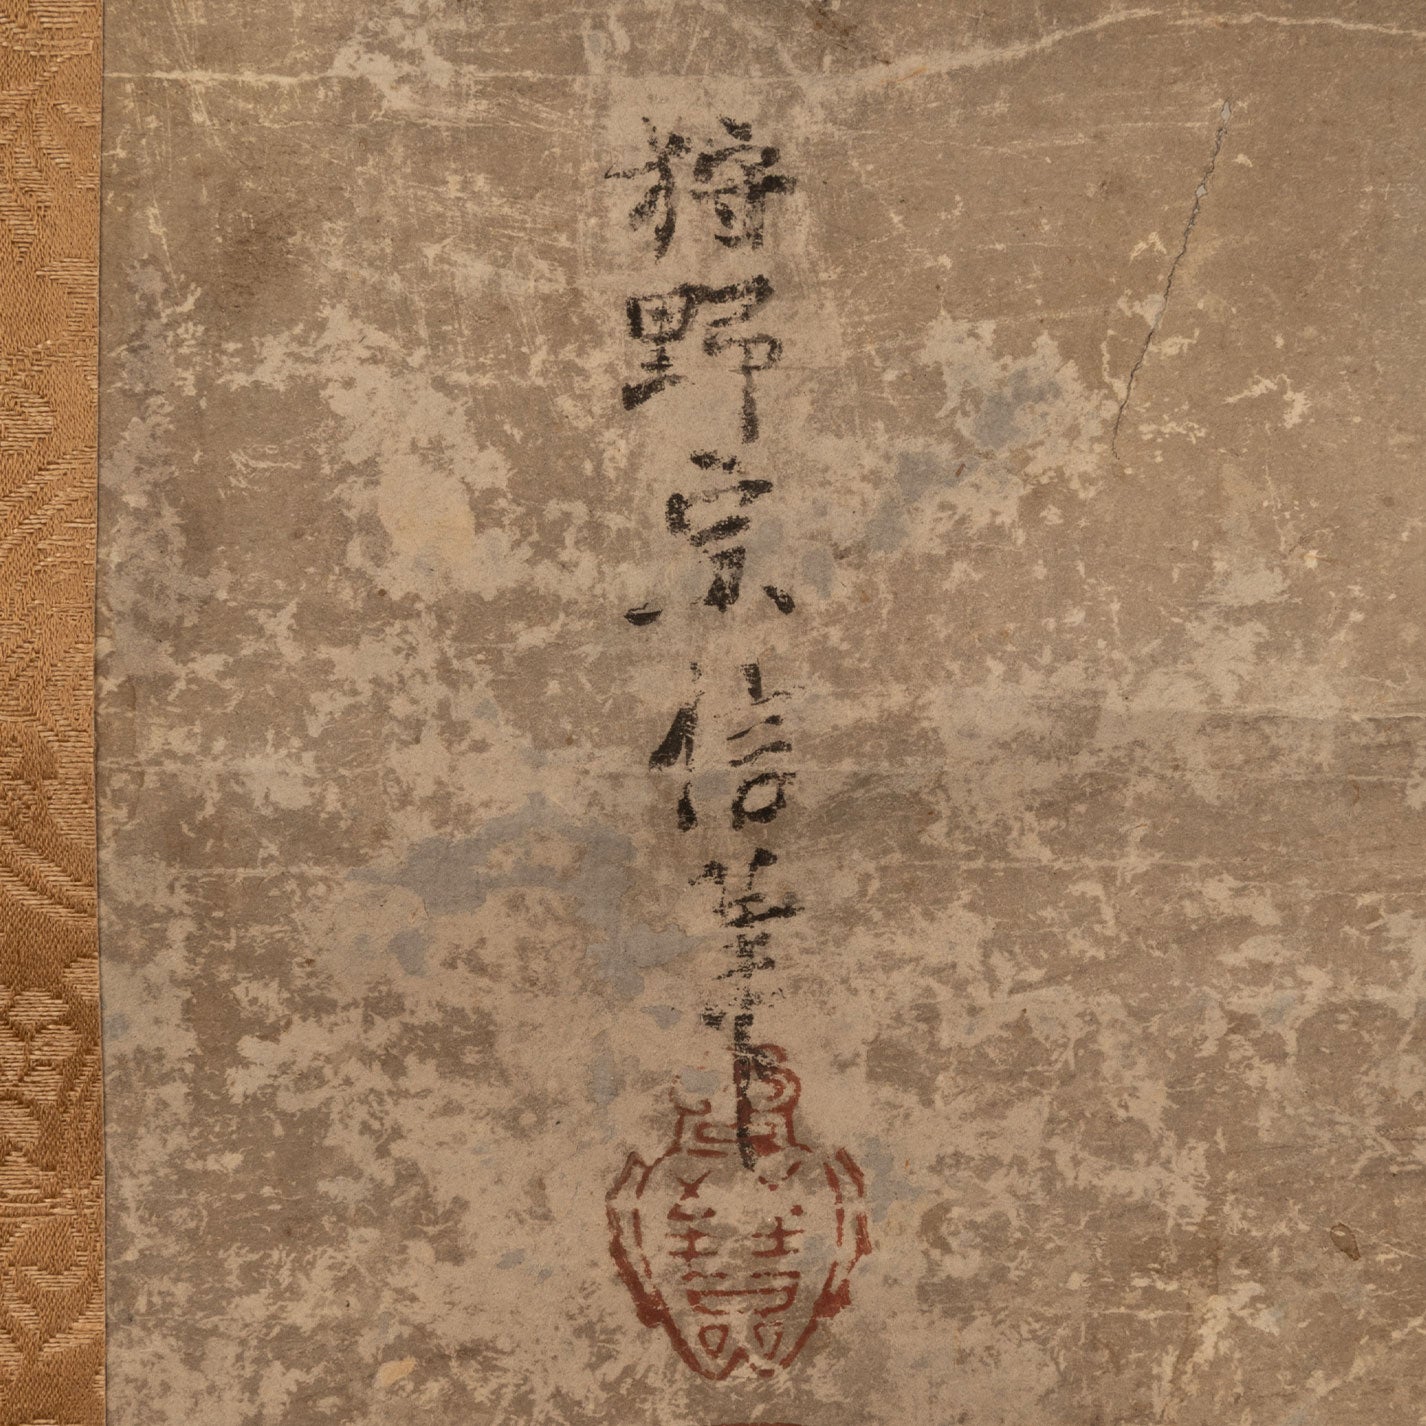 狩野宗信筆